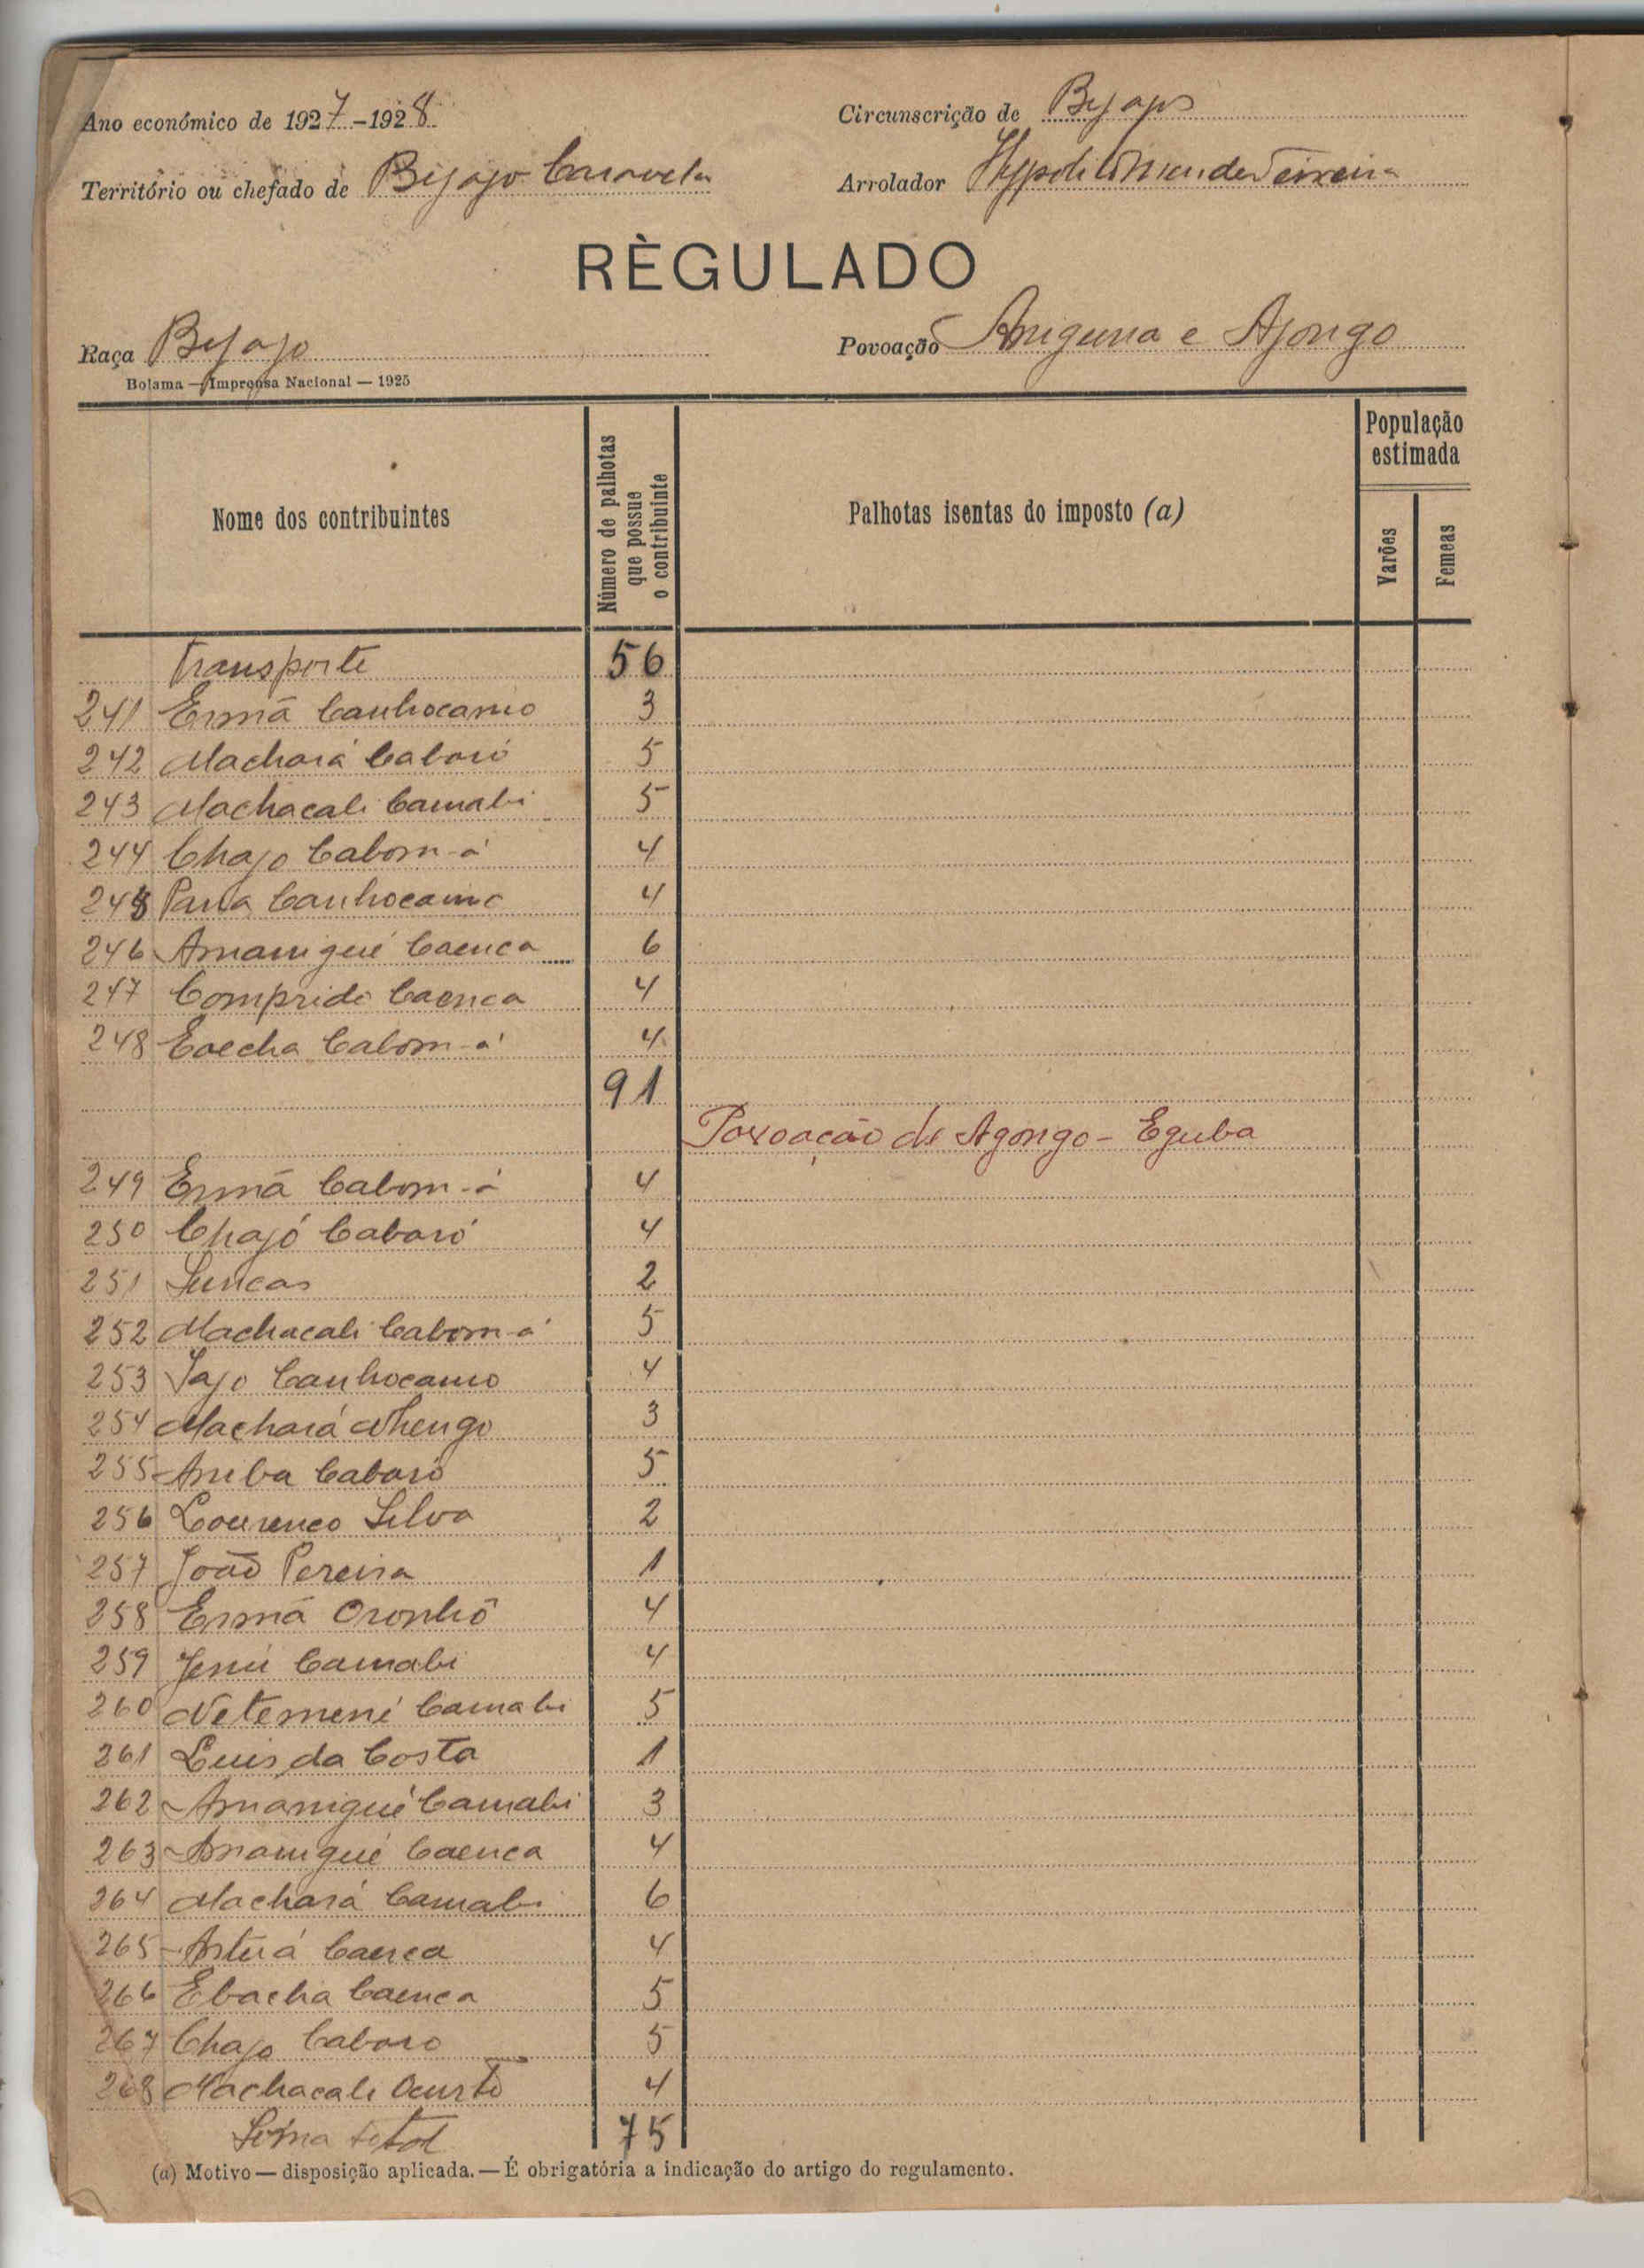 Ano económico de 1927-1928
Circunscrição de Byapos
Território ou chefado de Bijago Caravela
Arrolador Hypolito Mendes Teixeira
RÈGULADO
Raça Bijajo
Povoação Aniguna e Ajongo
Bolama — Imprensa Nacional — 1925
Nome dos contribuintes
Número de palhotas que possue o contribuinte
Palhotas isentas do imposto (a)
População estimada
Varões
Femeas
Transporte 56
241 Enmã Canhocamo 3
242 Machará Caboró 5
243 Machacali Camabi 5
244 Chajo Cabom-á 4
245 Pana Canhocamo 4
246 Amanigué Caenca 6
247 Comprido Caenca 4
248 Eoecha Cabom-á 4
91
Povoação de Agongo - Eguba
249 Enmã Cabom-á 4
250 Chajó Caboró 4
251 Luncas 2
252 Machacali Cabom-á 5
253 Jajo Canhocamo 4
254 Machará Nhengo 3
255 Aniba Caboró 5
256 Lourenco Silva 2
257 João Pereira 1
258 Enmã Oronhô 4
259 Jenú Camabi 4
260 Netemené Camabi 5
261 Luis da Costa 1
262 Amanigué Camabi 3
263 Amanigué Caenca 4
264 Machará Camabi 6
265 Anturá Caenca 4
266 Ebacha Caenca 5
267 Chajo Caboro 5
268 Machacali Ocurtô 4
Sôma total 75
(a) Motivo — disposição aplicada. — É obrigatória a indicação do artigo do regulamento.